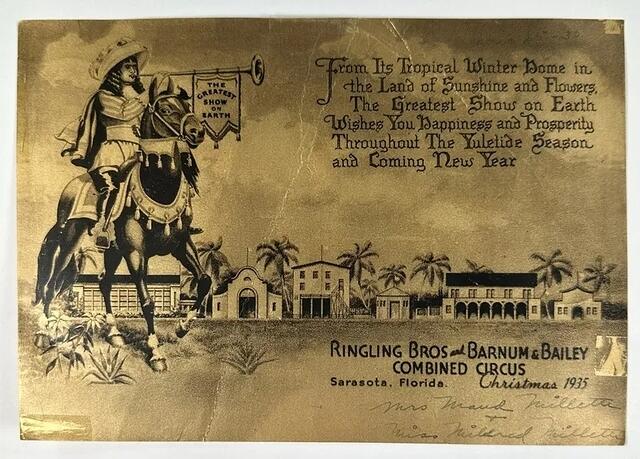 THE
GREATEST
SHOW
ON
EARTH
From Its Tropical Winter Home in
the Land of Sunshine and Flowers,
The Greatest Show on Earth
Wishes You Happiness and Prosperity
Throughout The Yuletide Season
and Coming New Year
RINGLING BROS and BARNUM & BAILEY
COMBINED CIRCUS
Sarasota, Florida. Christmas 1935
Mrs Maud Millette
+
Miss Mildred Millette